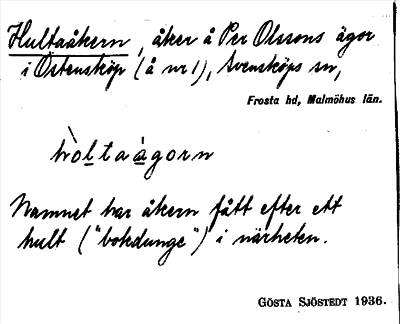 Hultaåkern, åker å Per Olssons ägor
i Östensköp (å nr 1), Svensköps sn,
Frosta hd, Malmöhus län.
hòltaàgorn
Namnet har åkern fått efter ett
hult ("bokdunge") i närheten.
GÖSTA SJÖSTEDT 1936.